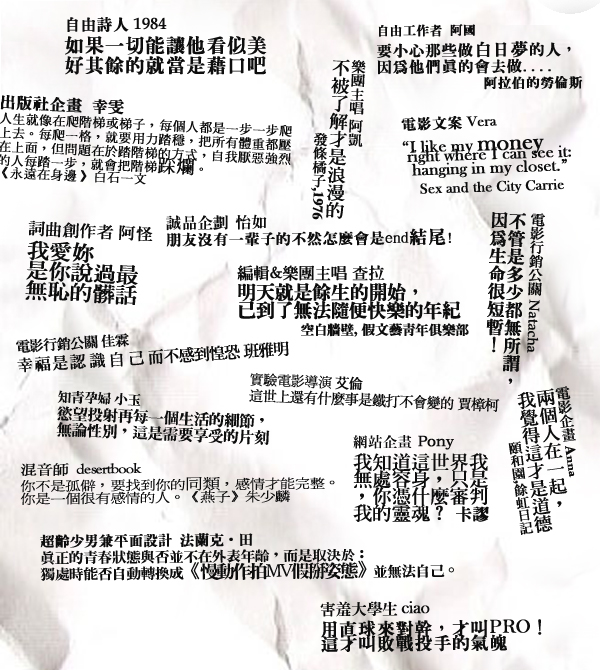 自由詩人 1984
如果一切能讓他看似美
好其餘的就當是藉口吧
自由工作者 阿國
要小心那些做白日夢的人，
因為他們真的會去做....
阿拉伯的勞倫斯
出版社企畫 幸雯
人生就像在爬階梯或梯子，每個人都是一步一步爬
上去。每爬一格，就要用力踏穩，把所有體重都壓
在上面，但問題在於踏階梯的方式，自我厭惡強烈
的人每踏一步，就會把階梯踩爛。
《永遠在身邊》白石一文
樂團主唱 阿凱
不被了解才是浪漫的
發條橘子,1976
電影文案 Vera
“I like my money
right where I can see it:
hanging in my closet.”
Sex and the City Carrie
詞曲創作者 阿怪
我愛妳
是你說過最
無恥的髒話
誠品企劃 怡如
朋友沒有一輩子的不然怎麼會是end結尾!
編輯&樂團主唱 查拉
明天就是餘生的開始，
已到了無法隨便快樂的年紀
空白牆壁, 假文藝青年俱樂部
電影行銷公關 Natacha
不管是多少都無所謂，
因為生命很短暫！
電影行銷公關 佳霖
幸福是認識自己而不感到惶恐 班雅明
實驗電影導演 艾倫
這世上還有什麼事是鐵打不會變的 賈樟柯
知青孕婦 小玉
慾望投射再每一個生活的細節，
無論性別，這是需要享受的片刻
電影企畫 Anna
兩個人在一起，
我覺得這才是道德
頤和園 餘虹日記
網站企畫 Pony
我知道這世界我
無處容身，只是
，你憑什麼審判
我的靈魂？ 卡謬
混音師 desertbook
你不是孤僻，要找到你的同類，感情才能完整。
你是一個很有感情的人。《燕子》朱少麟
超齡少男兼平面設計 法蘭克・田
真正的青春狀態與否並不在外表年齡，而是取決於：
獨處時能否自動轉換成《慢動作拍MV假掰姿態》並無法自己。
害羞大學生 ciao
用直球來對幹，才叫PRO！
這才叫敗戰投手的氣魄